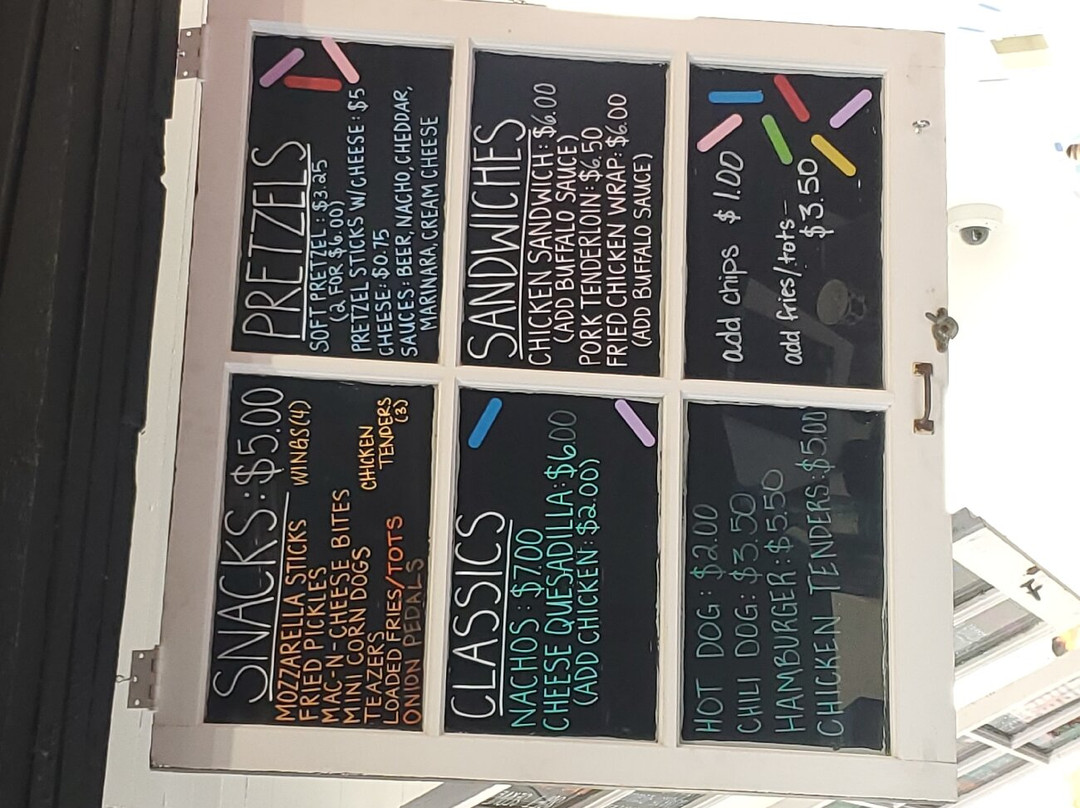 SNACKS: $5.00
MOZZARELLA STICKS
FRIED PICKLES
MAC-N-CHEESE BITES
MINI CORN DOGS
TEAZERS
LOADED FRIES/TOTS
ONION PEDALS
WINGS (4)
CHICKEN
TENDERS
(3)
PRETZELS
SOFT PRETZEL: $3.25
(2 FOR $6.00)
PRETZEL STICKS W/CHEESE: $5
CHEESE: $0.75
SAUCES: BEER, NACHO, CHEDDAR,
MARINARA, CREAM CHEESE
CLASSICS
NACHOS: $7.00
CHEESE QUESADILLA: $6.00
(ADD CHICKEN: $2.00)
SANDWICHES
CHICKEN SANDWICH: $6.00
(ADD BUFFALO SAUCE)
PORK TENDERLOIN: $6.50
FRIED CHICKEN WRAP: $6.00
(ADD BUFFALO SAUCE)
HOT DOG: $2.00
CHILI DOG: $3.50
HAMBURGER: $5.50
CHICKEN TENDERS: $5.00
add chips $1.00
add fries/tots-
$3.50